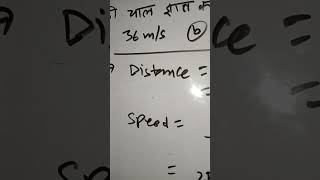 चाल ज्ञात
36 m/s (b)
Distance =
=
Speed =
=